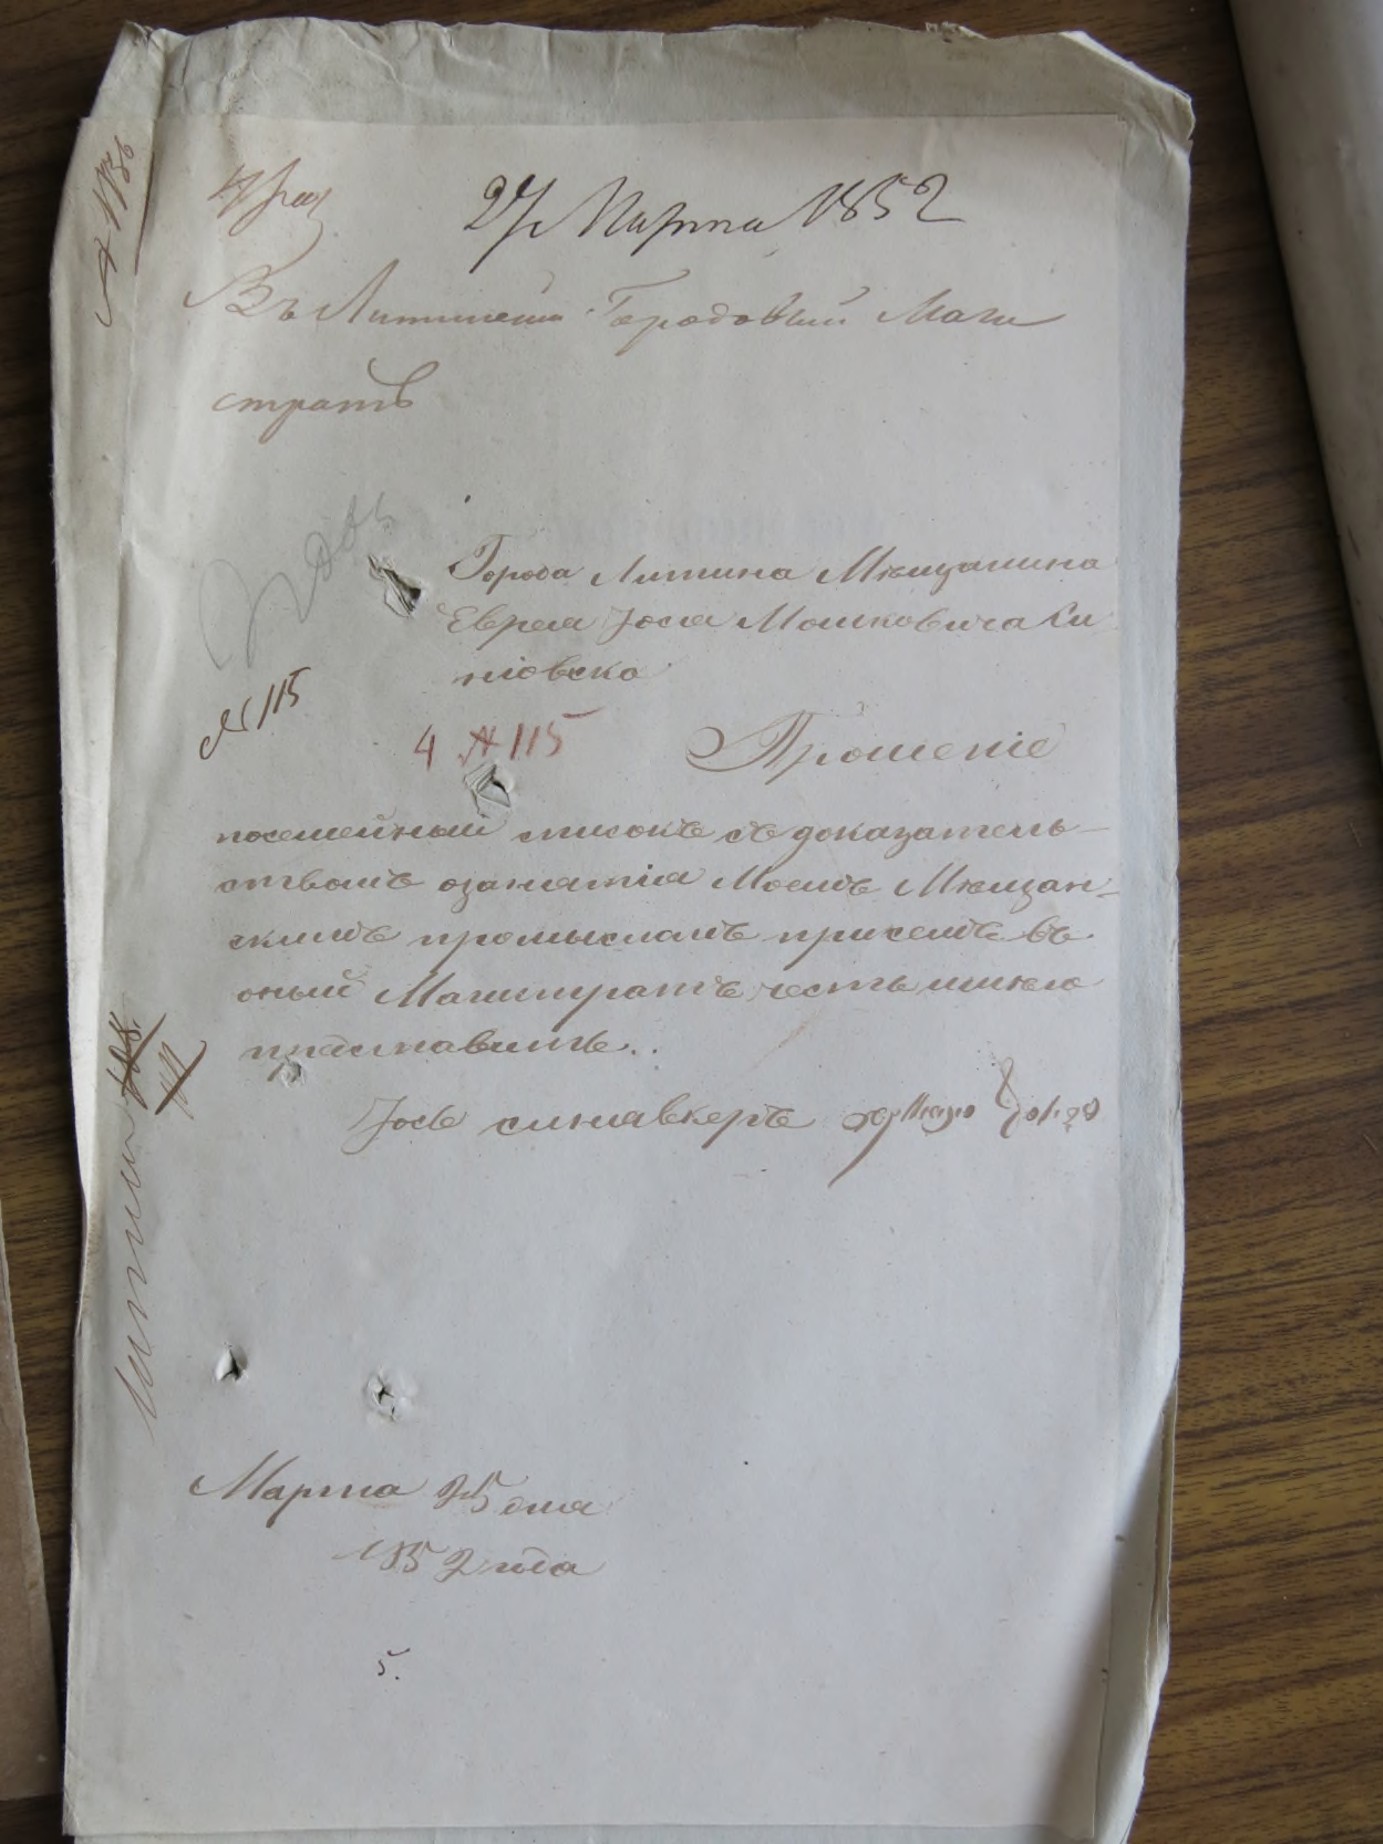 № 136
27 Марта 1852
Въ Литинский Городовый Маги
стратъ
Города Литина Мѣщанина
Еврея Іося Мошковича
№ 115
4 № 115
Прошеніе
посемейный списокъ съ доказатель-
ствомъ озанятіи Моемъ Мѣщан-
скимъ промысломъ присемъ въ
оный Магистратъ честь имѣю
представить..
Іось
Марта 25 дня
1852 года
5.